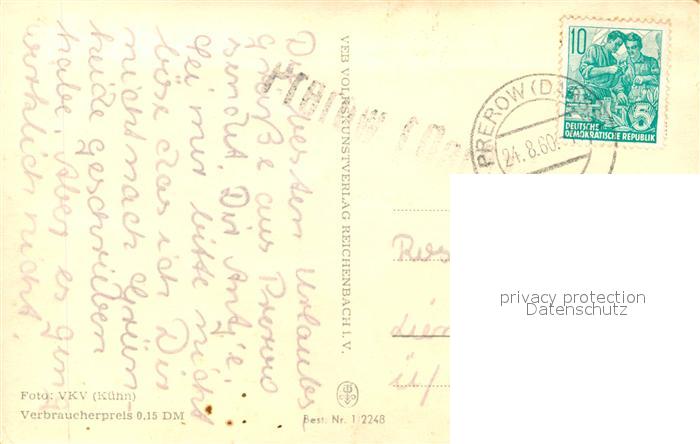 Die besten Urlaubs
grüße aus Prerow
sendet Dir Antje.
Sei mir bitte nicht
böse das ich Dir
nicht nach Grün-
heide geschrieben
habe. Aber es ging
wirklich nicht.
VEB VOLKSKUNSTVERLAG REICHENBACH I. V.
Foto: VKV (Kühn)
Verbraucherpreis 0,15 DM
Best. Nr. 1 2248
10
DEUTSCHE
DEMOKRATISCHE REPUBLIK
PREROW (DA
24.8.60
privacy protection
Datenschutz